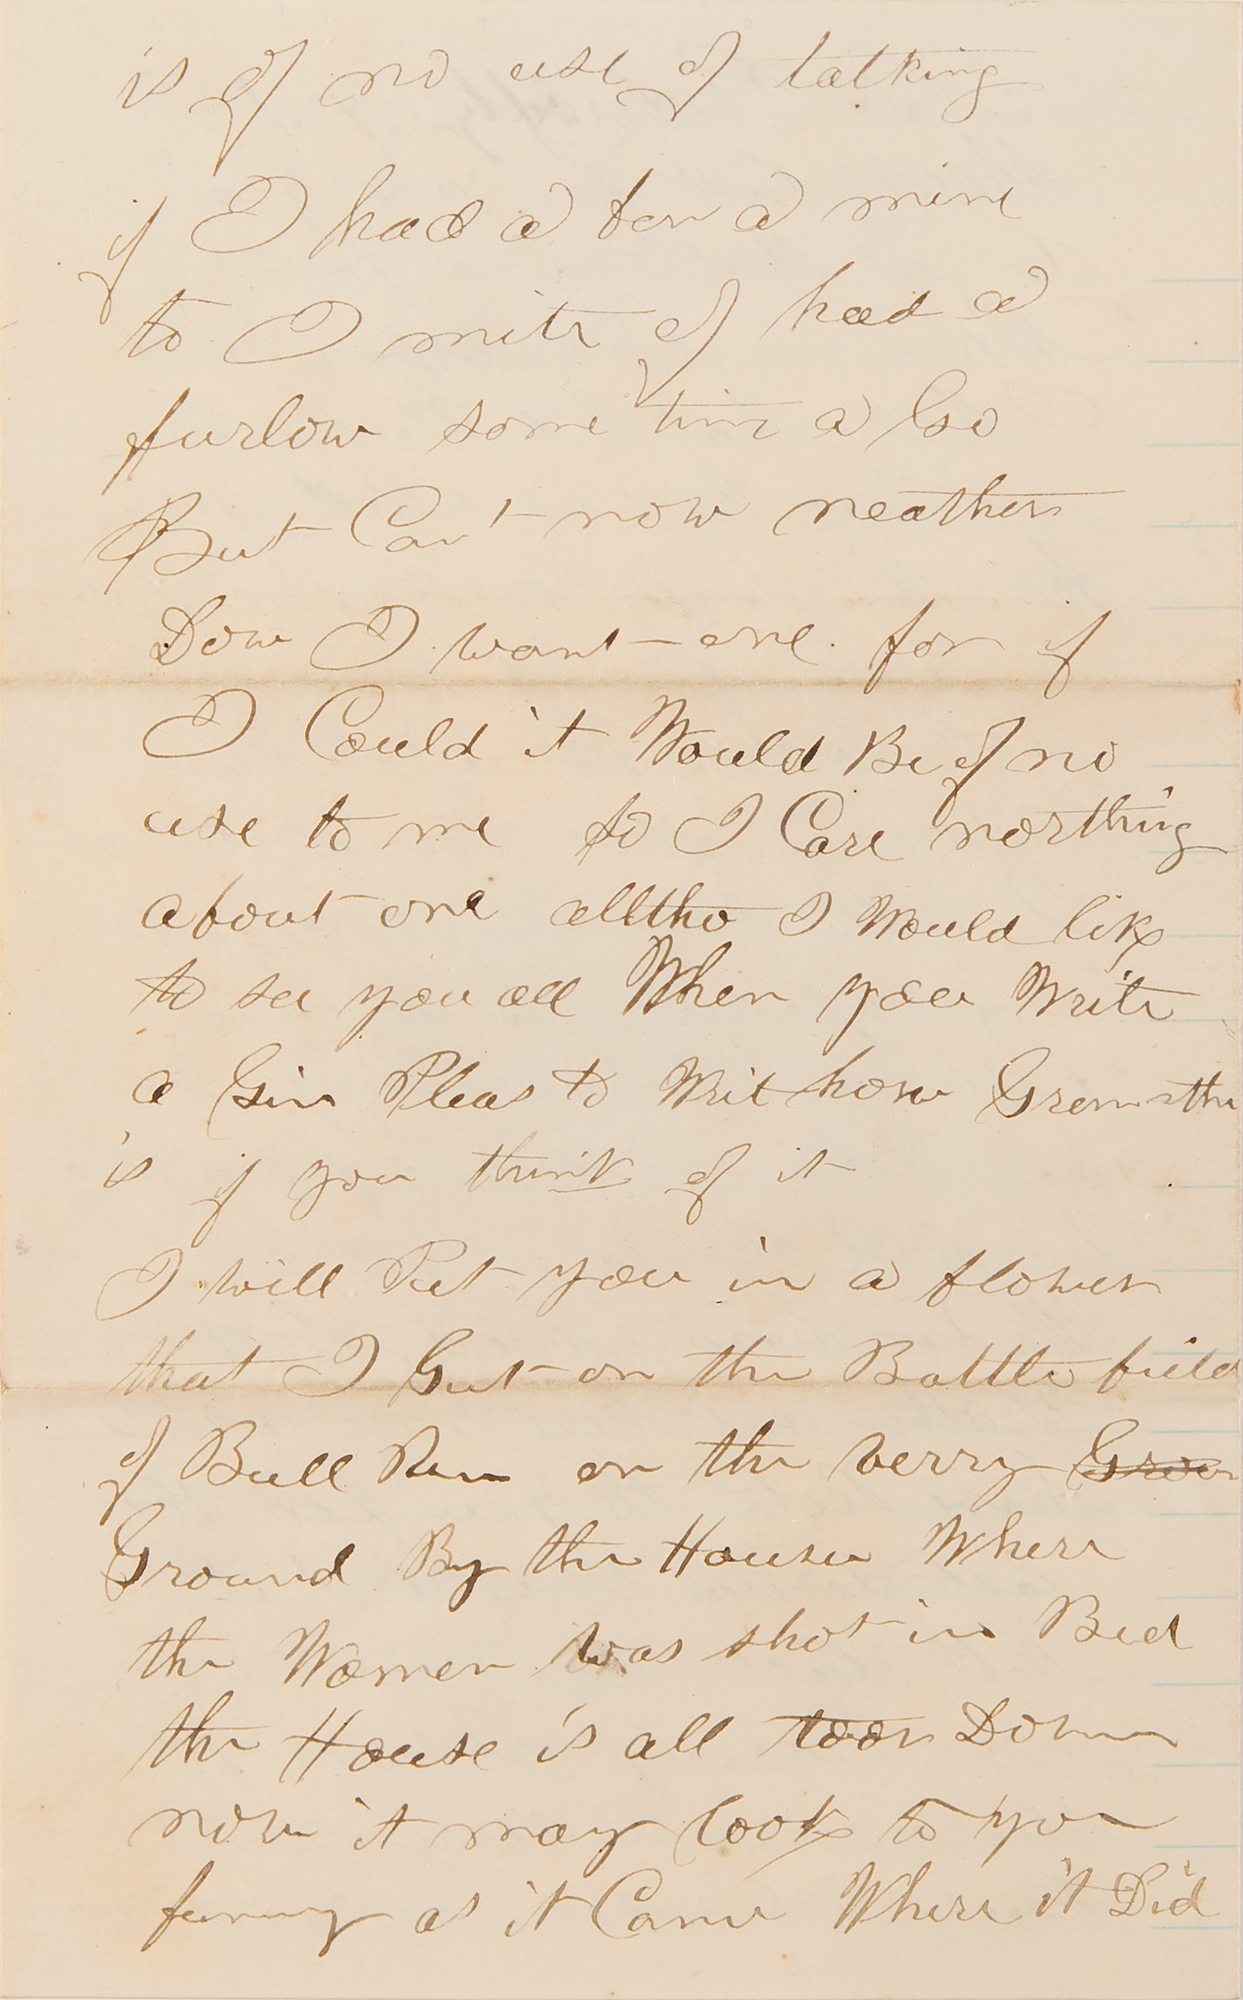 is of no use of talking
if I had a ben a mine
to I mite of had a
furlow some time a Go
But Can't now neather
Dow I want one. for if
I Could it Would Be of no
use to me so I Care northing
about one alltho I Would like
to see you all When you Write
a Gin Pleas to Writ how
is if you think of it
I will Put you in a flower
that I Gut on the Battle field
of Bull Run on the verry Groun
Ground By the House Where
the Women was shot in Bed
the House is all toor Down
now it may look to you
funny as it Came Where it Did